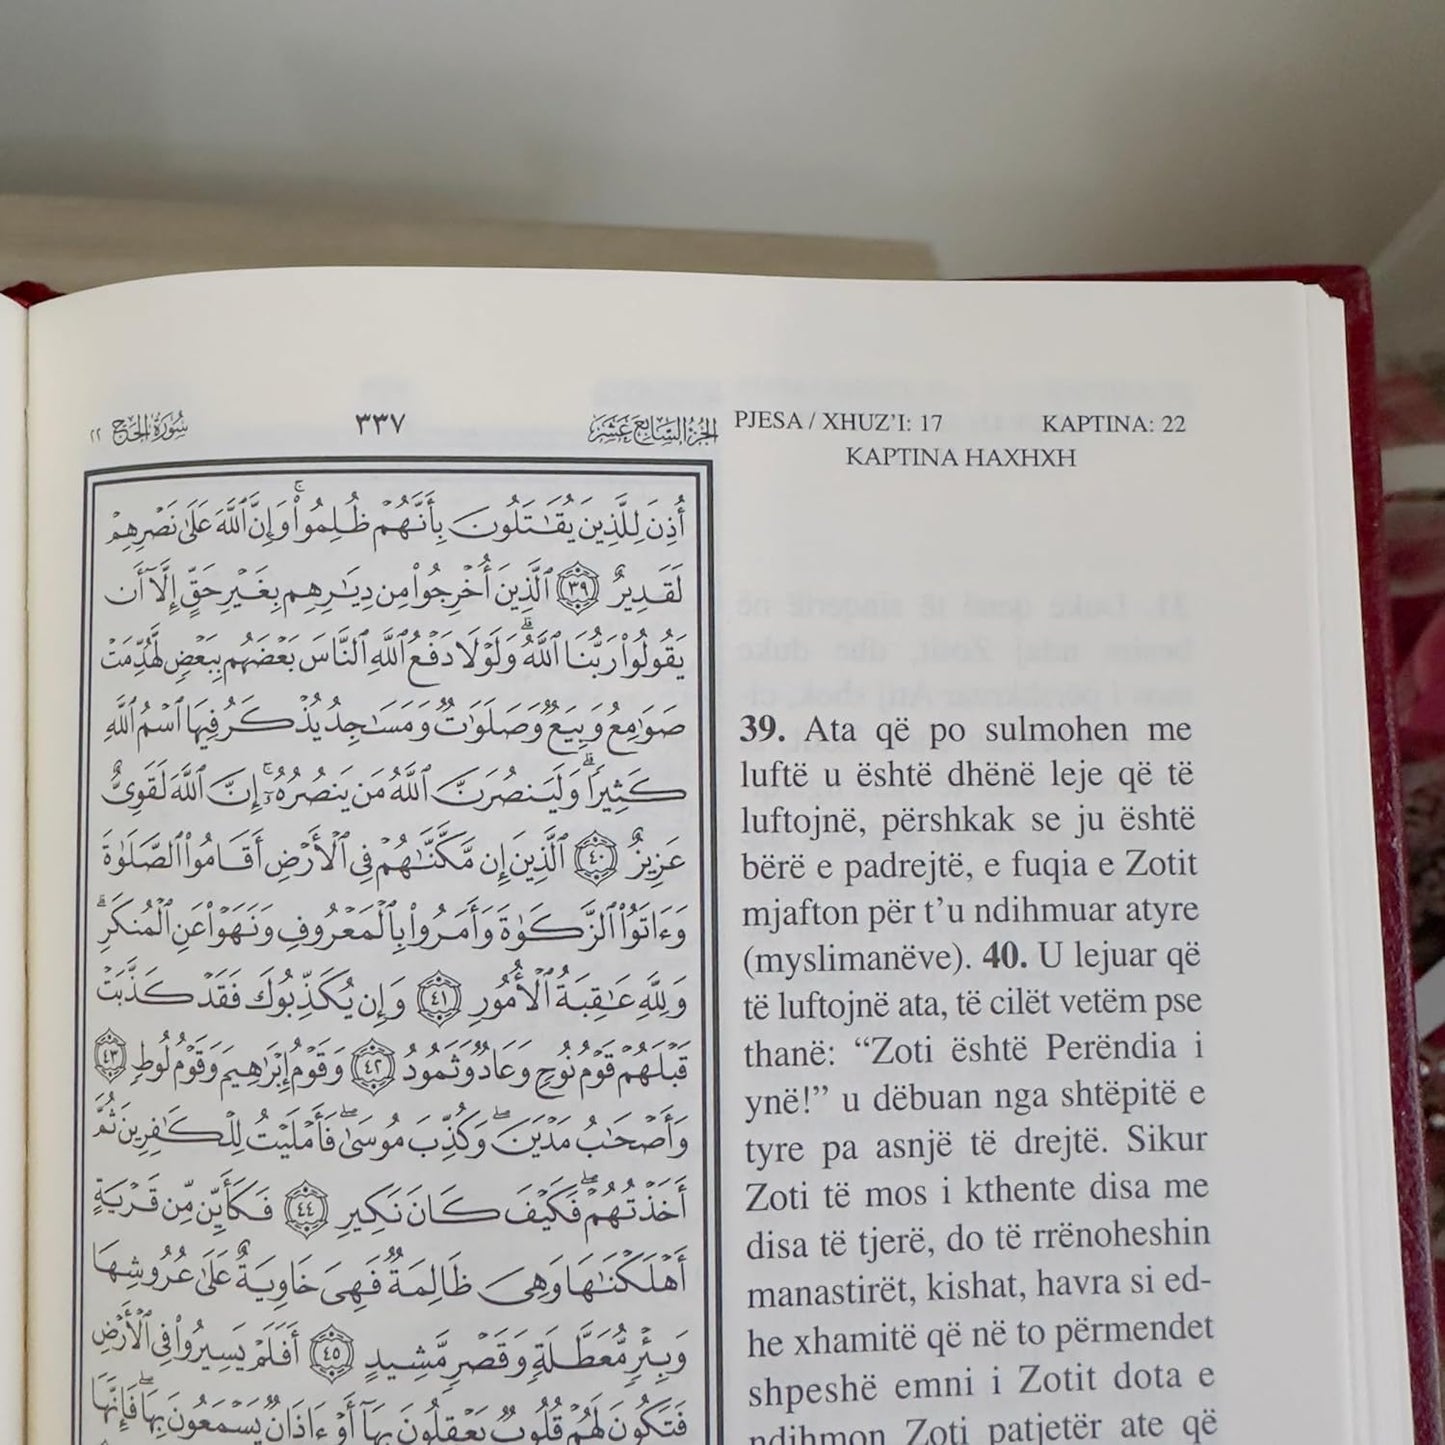 سُورَةُ الحَجّ ٢٢
٣٣٧
الجُزْءُ السَّابِعَ عَشَرَ
أُذِنَ لِلَّذِينَ يُقَٰتَلُونَ بِأَنَّهُمْ ظُلِمُوا۟ ۚ وَإِنَّ ٱللَّهَ عَلَىٰ نَصْرِهِمْ
لَقَدِيرٌ ٣٩ ٱلَّذِينَ أُخْرِجُوا۟ مِن دِيَٰرِهِم بِغَيْرِ حَقٍّ إِلَّآ أَن
يَقُولُوا۟ رَبُّنَا ٱللَّهُ ۗ وَلَوْلَا دَفْعُ ٱللَّهِ ٱلنَّاسَ بَعْضَهُم بِبَعْضٍ لَّهُدِّمَتْ
صَوَٰمِعُ وَبِيَعٌ وَصَلَوَٰتٌ وَمَسَٰجِدُ يُذْكَرُ فِيهَا ٱسْمُ ٱللَّهِ
كَثِيرًا ۗ وَلَيَنصُرَنَّ ٱللَّهُ مَن يَنصُرُهُۥٓ ۗ إِنَّ ٱللَّهَ لَقَوِىٌّ
عَزِيزٌ ٤٠ ٱلَّذِينَ إِن مَّكَّنَّٰهُمْ فِى ٱلْأَرْضِ أَقَامُوا۟ ٱلصَّلَوٰةَ
وَءَاتَوُا۟ ٱلزَّكَوٰةَ وَأَمَرُوا۟ بِٱلْمَعْرُوفِ وَنَهَوْا۟ عَنِ ٱلْمُنكَرِ ۗ
وَلِلَّهِ عَٰقِبَةُ ٱلْأُمُورِ ٤١ وَإِن يُكَذِّبُوكَ فَقَدْ كَذَّبَتْ
قَبْلَهُمْ قَوْمُ نُوحٍ وَعَادٌ وَثَمُودُ ٤٢ وَقَوْمُ إِبْرَٰهِيمَ وَقَوْمُ لُوطٍ ٤٣
وَأَصْحَٰبُ مَدْيَنَ ۖ وَكُذِّبَ مُوسَىٰ ۖ فَأَمْلَيْتُ لِلْكَٰفِرِينَ ثُمَّ
أَخَذْتُهُمْ ۖ فَكَيْفَ كَانَ نَكِيرِ ٤٤ فَكَأَيِّن مِّن قَرْيَةٍ
أَهْلَكْنَٰهَا وَهِىَ ظَالِمَةٌ فَهِىَ خَاوِيَةٌ عَلَىٰ عُرُوشِهَا
وَبِئْرٍ مُّعَطَّلَةٍ وَقَصْرٍ مَّشِيدٍ ٤٥ أَفَلَمْ يَسِيرُوا۟ فِى ٱلْأَرْضِ
فَتَكُونَ لَهُمْ قُلُوبٌ يَعْقِلُونَ بِهَآ أَوْ ءَاذَانٌ يَسْمَعُونَ بِهَا ۖ فَإِنَّهَا
PJESA / XHUZ’I: 17 KAPTINA: 22
KAPTINA HAXHXH
39. Ata që po sulmohen me
luftë u është dhënë leje që të
luftojnë, përshkak se ju është
bërë e padrejtë, e fuqia e Zotit
mjafton për t’u ndihmuar atyre
(myslimanëve). 40. U lejuar që
të luftojnë ata, të cilët vetëm pse
thanë: “Zoti është Perëndia i
ynë!” u dëbuan nga shtëpitë e
tyre pa asnjë të drejtë. Sikur
Zoti të mos i kthente disa me
disa të tjerë, do të rrënoheshin
manastirët, kishat, havra si ed-
he xhamitë që në to përmendet
shpeshë emni i Zotit dota e
ndihmon Zoti patjetër ate që